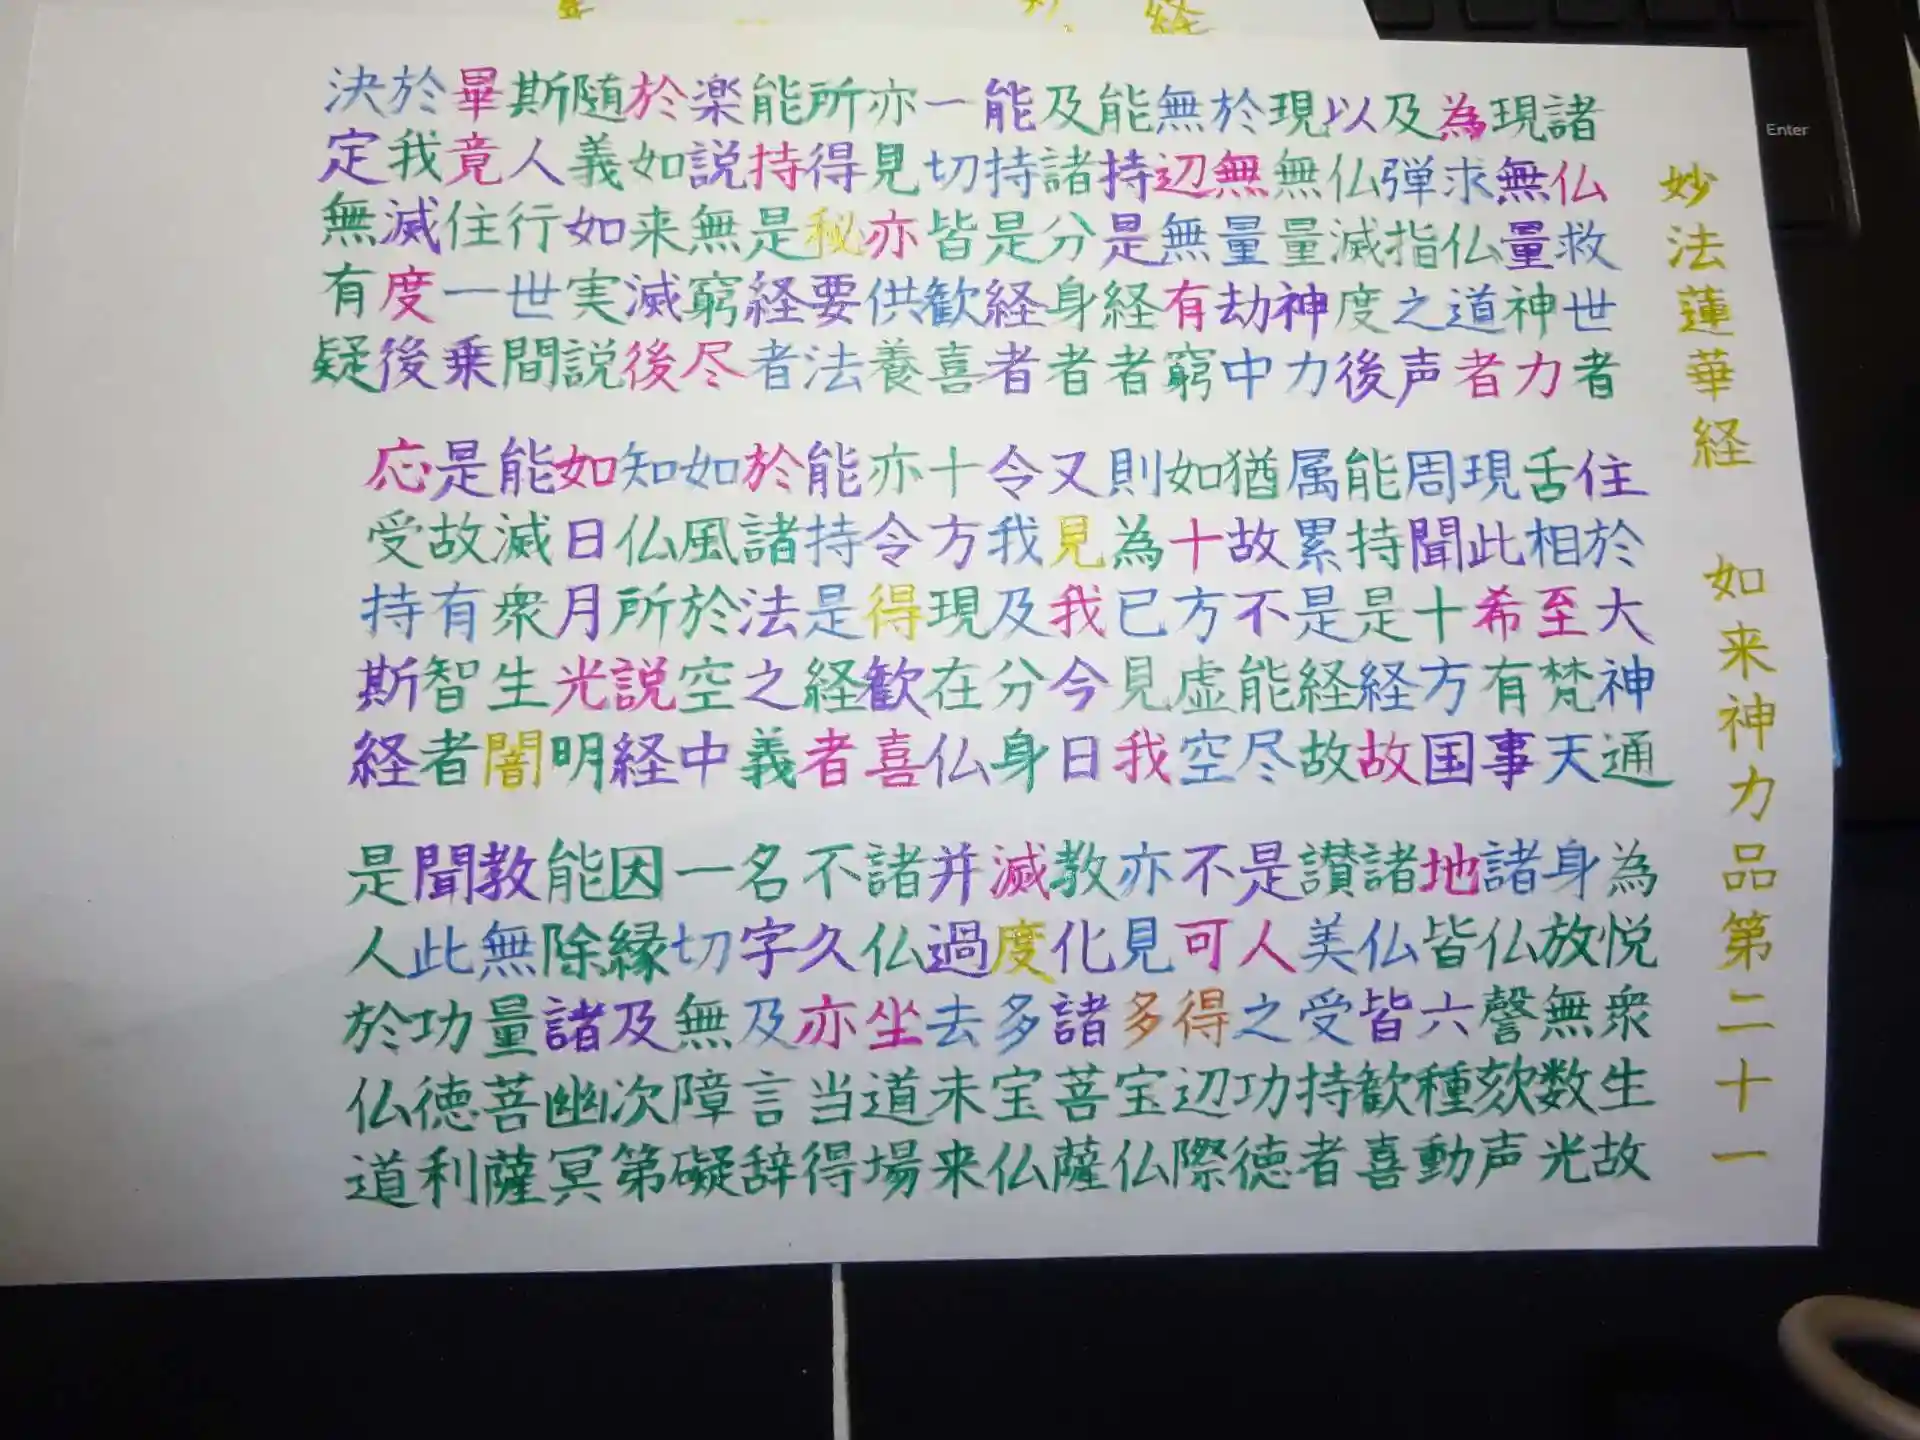 妙法蓮華経 如来神力品第二十一
諸仏救世者 住於大神通 為悦衆生故
現無量神力 舌相至梵天 身放無数光
為求仏道者 現此希有事 諸仏謦欬声
及弾指之声 周聞十方国 地皆六種動
以仏滅度後 能持是経故 諸仏皆歓喜
現無量神力 属累是経故 讃美受持者
於無量劫中 猶故不能尽 是人之功徳
無辺無有窮 如十方虚空 不可得辺際
能持是経者 則為已見我 亦見多宝仏
及諸分身者 又我今日身 教化諸菩薩
能持是経者 令我及分身 滅度多宝仏
一切皆歓喜 十方現在仏 并過去未来
亦見亦供養 亦令得歓喜 諸仏坐道場
所得秘要法 能持是経者 不久亦当得
能持是経者 於諸法之義 名字及言辞
楽説無窮尽 如風於空中 一切無障礙
於如来滅後 知仏所説経 因縁及次第
随義如実説 如日月光明 能除諸幽冥
斯人行世間 能滅衆生闇 教無量菩薩
畢竟住一乗 是故有智者 聞此功徳利
於我滅度後 応受持斯経 是人於仏道
決定無有疑
Enter
経